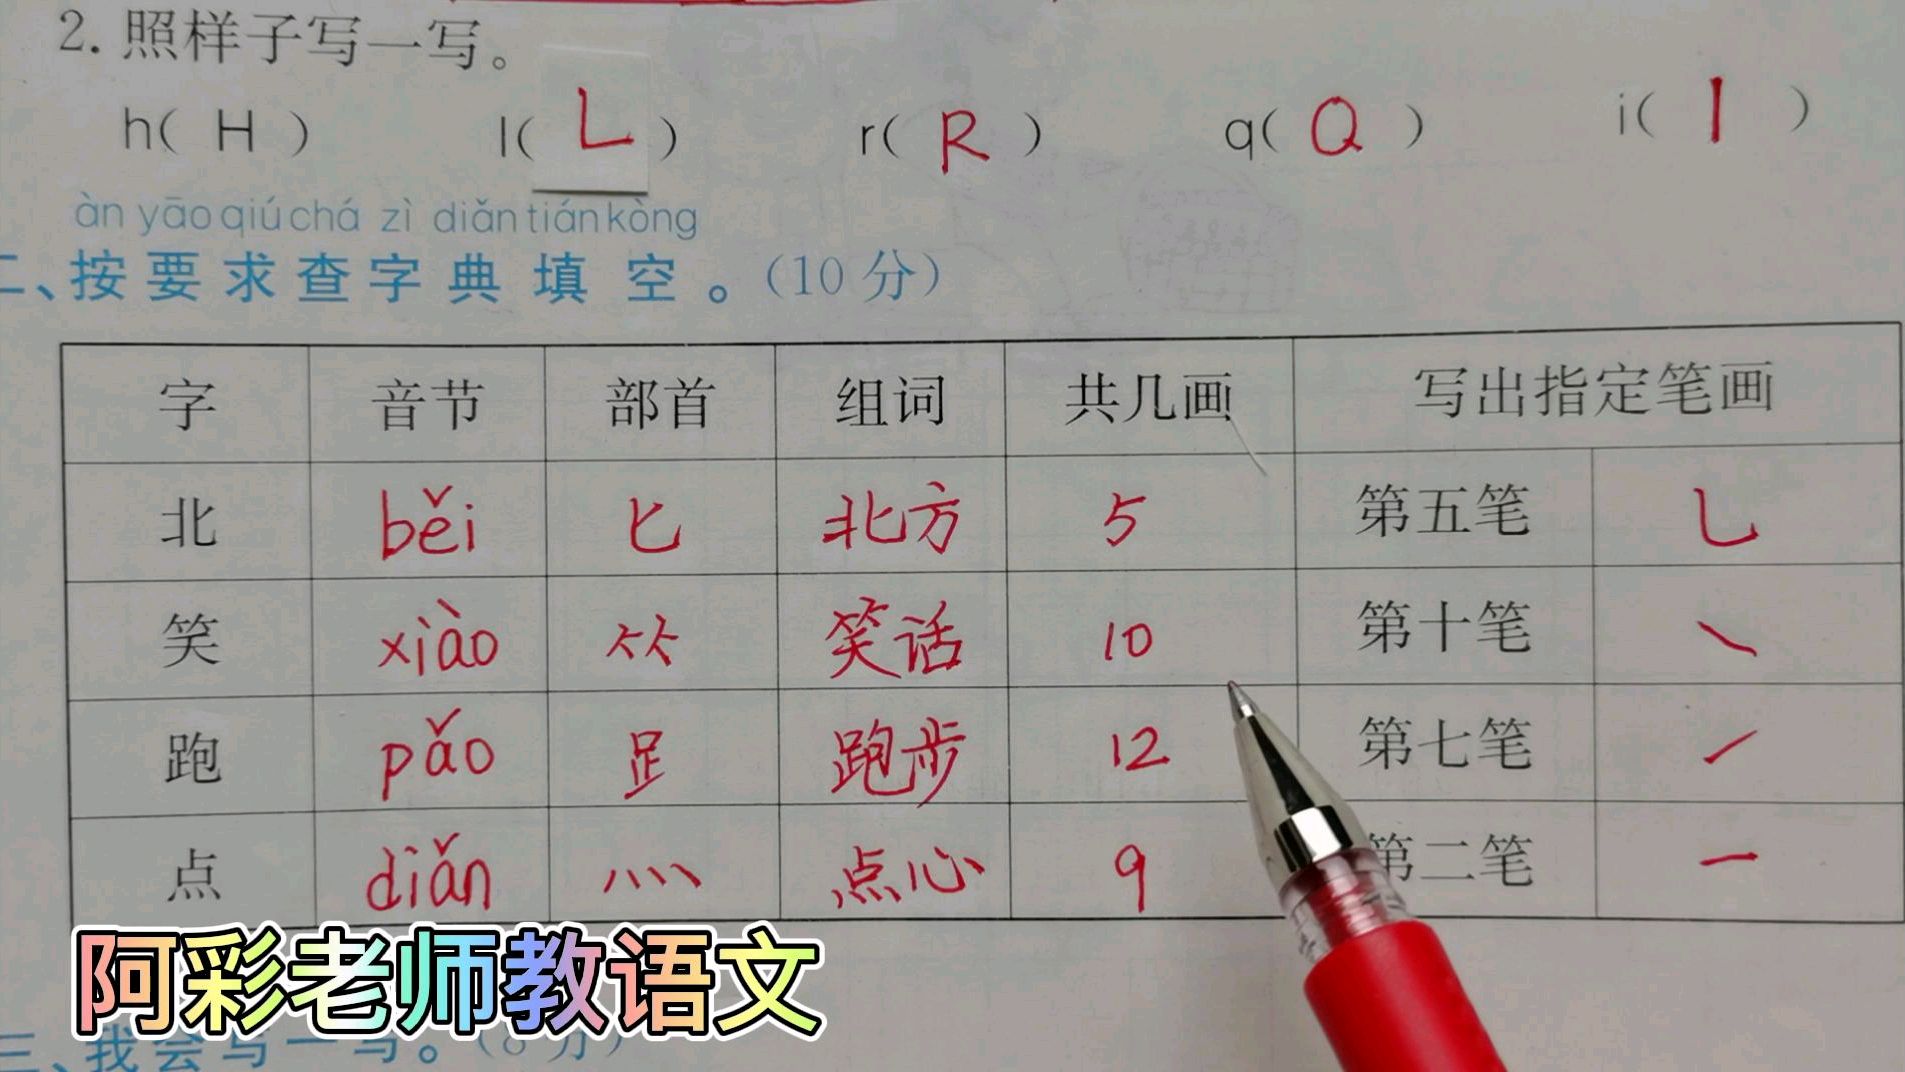 2.照样子写一写。
h( H ) l( L ) r( R ) q( Q ) i( I )
àn yāo qiú chá zì diǎn tián kòng
二、按要求查字典填空。(10分)
字 音节 部首 组词 共几画 写出指定笔画
北 běi 匕 北方 5 第五笔 乚
笑 xiào ⺮ 笑话 10 第十笔 ㇏
跑 pǎo 𧾷 跑步 12 第七笔 ㇒
点 diǎn 灬 点心 9 第二笔 一
阿彩老师教语文
三、我会写一写。(8分)